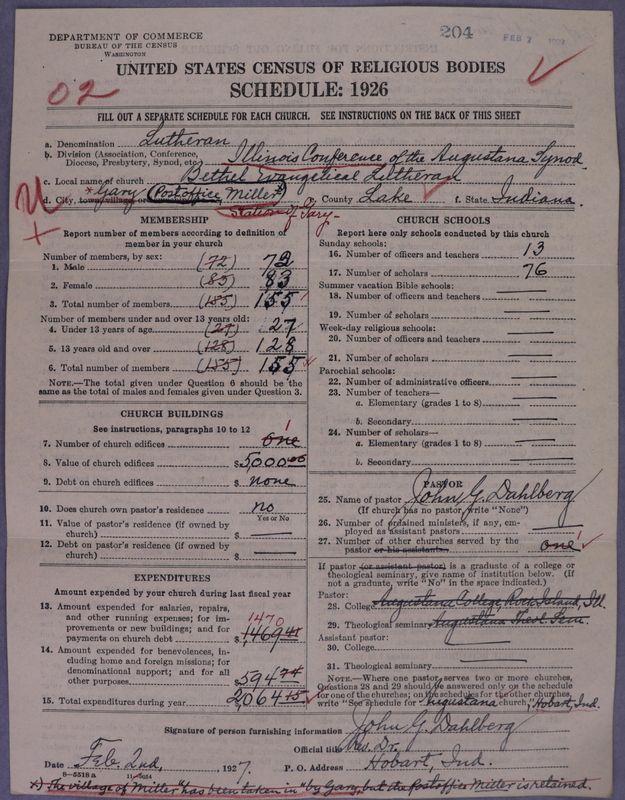 DEPARTMENT OF COMMERCE
BUREAU OF THE CENSUS
WASHINGTON
204
FEB 7
UNITED STATES CENSUS OF RELIGIOUS BODIES
SCHEDULE: 1926
02
FILL OUT A SEPARATE SCHEDULE FOR EACH CHURCH. SEE INSTRUCTIONS ON THE BACK OF THIS SHEET
a. Denomination Lutheran
b. Division (Association, Conference, Diocese, Presbytery, Synod, etc.) Illinois Conference of the Augustana Synod
c. Local name of church Bethel Evangelical Lutheran
d. City, town, village, or * Gary (Postoffice Miller*) e. County Lake f. State Indiana.
Station of Gary-
MEMBERSHIP
Report number of members according to definition of member in your church
Number of members, by sex:
1. Male (72) 72
2. Female (83) 83
3. Total number of members (155) 155
Number of members under and over 13 years old:
4. Under 13 years of age (27) 27
5. 13 years old and over (128) 128
6. Total number of members (155) 155
NOTE.—The total given under Question 6 should be the same as the total of males and females given under Question 3.
CHURCH BUILDINGS
See instructions, paragraphs 10 to 12
7. Number of church edifices one 1
8. Value of church edifices $5,000.00
9. Debt on church edifices $ none
10. Does church own pastor's residence no
Yes or No
11. Value of pastor's residence (if owned by church) $
12. Debt on pastor's residence (if owned by church) $
EXPENDITURES
Amount expended by your church during last fiscal year
13. Amount expended for salaries, repairs, and other running expenses; for improvements or new buildings; and for payments on church debt $1469.41
1470
14. Amount expended for benevolences, including home and foreign missions; for denominational support; and for all other purposes $594.74
15. Total expenditures during year 2064.15
CHURCH SCHOOLS
Report here only schools conducted by this church
Sunday schools:
16. Number of officers and teachers 13
17. Number of scholars 76
Summer vacation Bible schools:
18. Number of officers and teachers
19. Number of scholars
Week-day religious schools:
20. Number of officers and teachers
21. Number of scholars
Parochial schools:
22. Number of administrative officers
23. Number of teachers—
a. Elementary (grades 1 to 8)
b. Secondary
24. Number of scholars—
a. Elementary (grades 1 to 8)
b. Secondary
PASTOR
25. Name of pastor John G. Dahlberg
(If church has no pastor, write "None")
26. Number of ordained ministers, if any, employed as assistant pastors
27. Number of other churches served by the pastor or his assistants one 1
If pastor (or assistant pastor) is a graduate of a college or theological seminary, give name of institution below. (If not a graduate, write "No" in the space indicated.)
Pastor:
28. College Augustana College, Rock Island, Ill.
29. Theological seminary Augustana Theol. Sem.
Assistant pastor:
30. College
31. Theological seminary
NOTE.—Where one pastor serves two or more churches, Questions 28 and 29 should be answered only on the schedule for one of the churches; on the schedules for the other churches, write "See schedule for Augustana church, Hobart, Ind.
Signature of person furnishing information John G. Dahlberg
Official title
Date Feb. 2nd, 1927. P. O. Address Hobart, Ind.
8—5518 a
*) The village of "Miller" has been taken in by Gary, but the Postoffice Miller is retained.